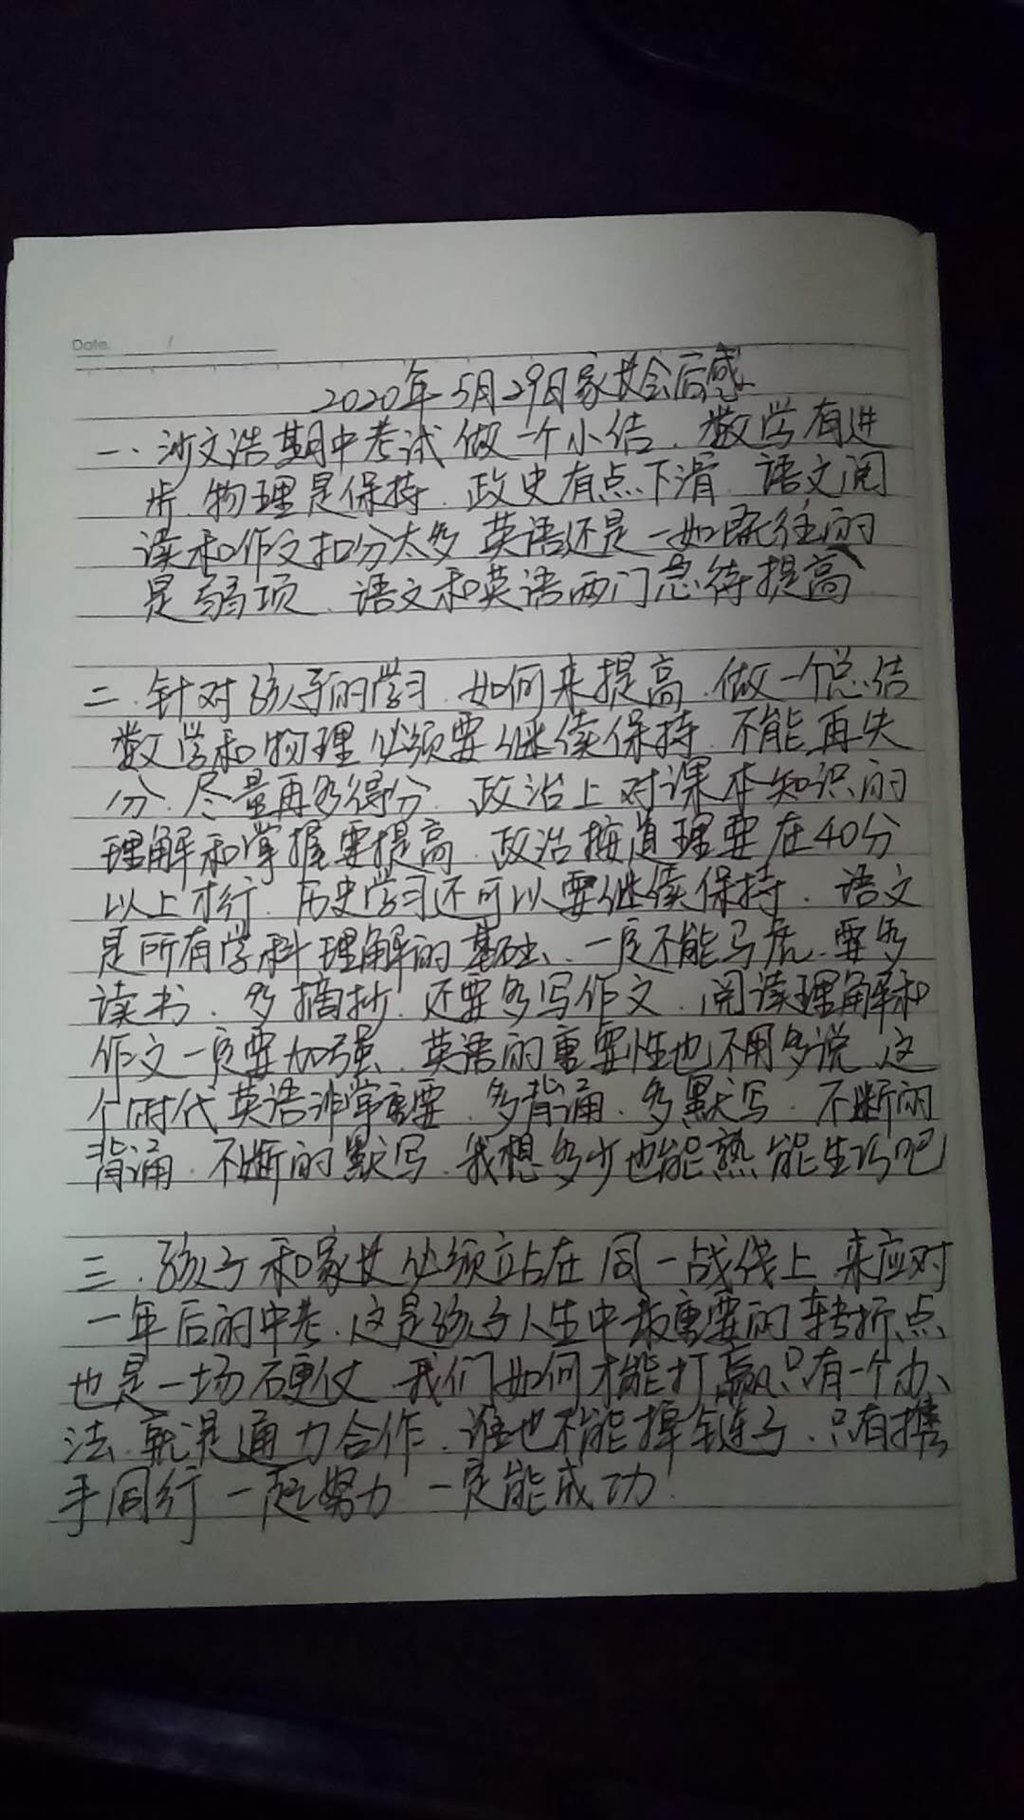 Date.
2020年5月29日家长会后感
一、沙文浩期中考试做一个小结、数学有进
步、物理是保持、政史有点下滑、语文阅
读和作文扣分太多 英语还是一如既往的
是弱项、语文和英语两门急待提高
二、针对孩子的学习、如何来提高、做一个总结
数学和物理必须要继续保持、不能再失
分、尽量再多得分、政治上对课本知识的
理解和掌握要提高、政治按道理要在40分
以上才行、历史学习还可以要继续保持、语文
是所有学科理解的基础、一定不能马虎、要多
读书、多摘抄、还要多写作文、阅读理解和
作文一定要加强、英语的重要性也不用多说 这
个时代英语非常重要、多背诵、多默写、不断的
背诵、不断的默写、我想多少也能熟能生巧吧
三、孩子和家长必须立站在同一战线上、来应对
一年后的中考、这是孩子人生中最重要的转折点、
也是一场硬仗 我们如何才能打赢只有一个办
法、就是通力合作、谁也不能掉链子、只有携
手同行 一起努力 一定能成功.